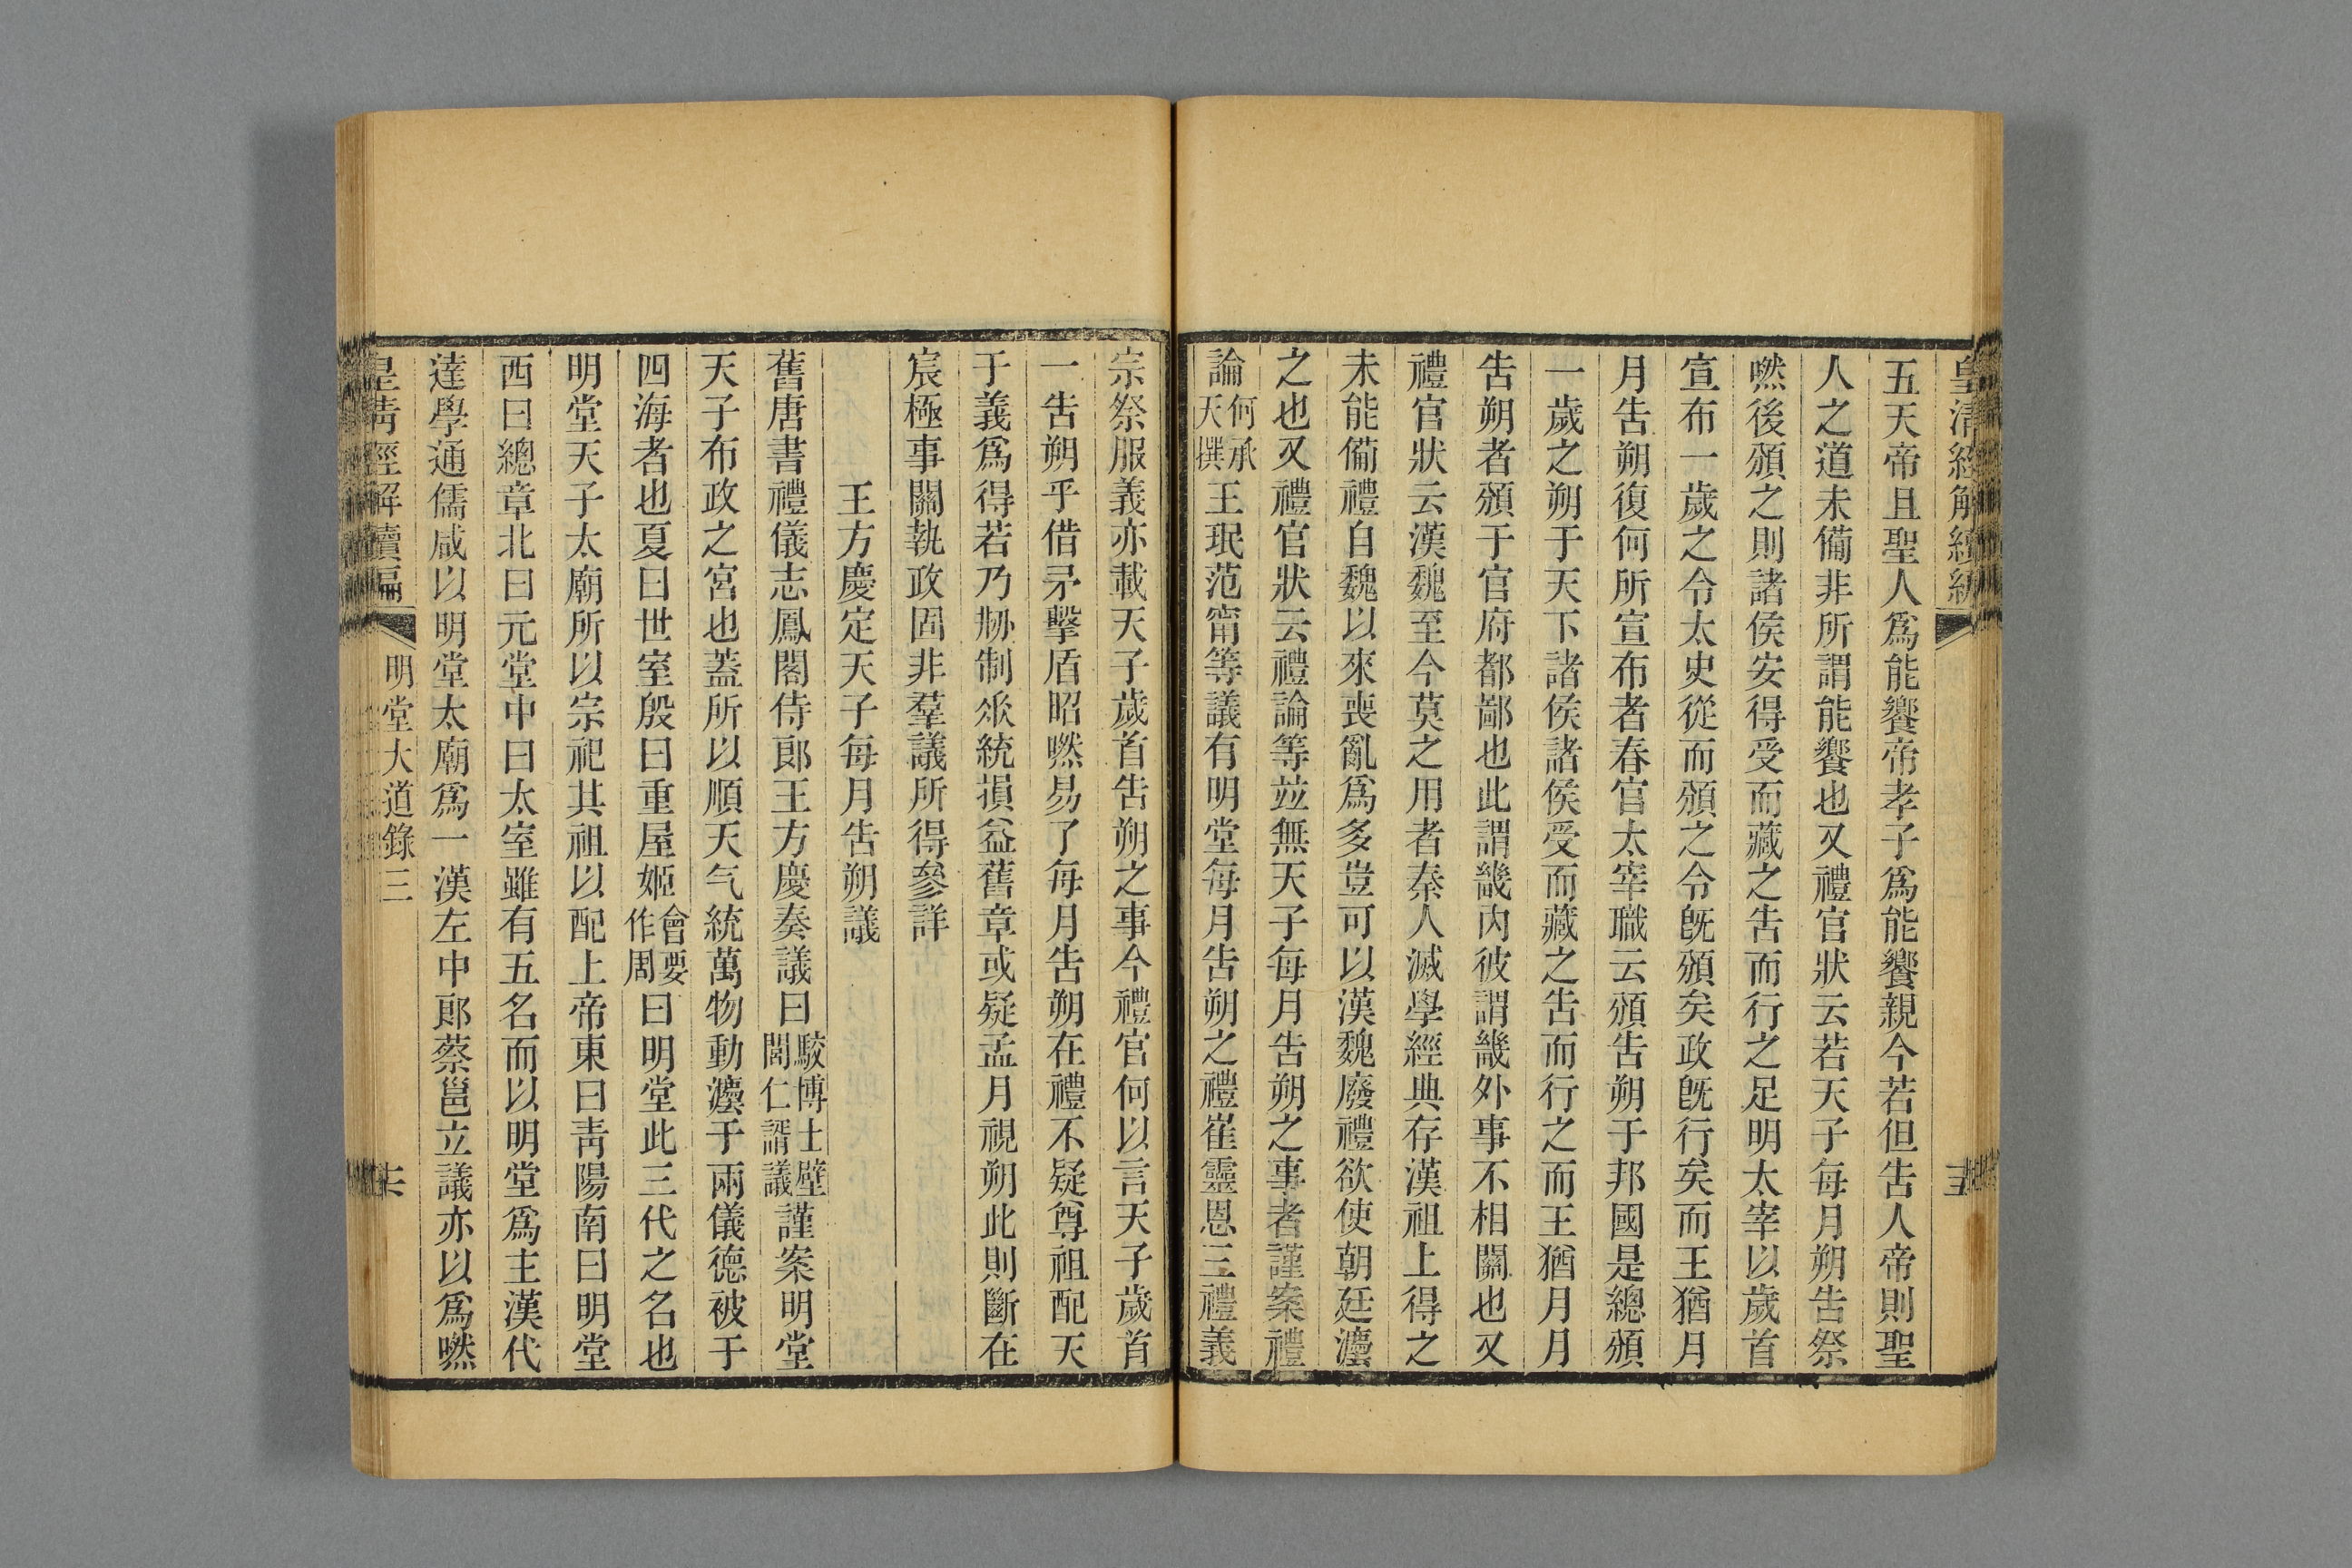 皇清經解續編
五天帝且聖人爲能饗帝孝子爲能饗親今若但告人帝則聖
人之道未僃非所謂能饗也又禮官狀云若天子每月朔告祭
嘫後頒之則諸侯安得受而藏之告而行之足明太宰以歲首
宣布一歲之令太史從而頒之令旣頒矣政旣行矣而王猶月
月告朔復何所宣布者春官太宰職云頒告朔于邦國是總頒
一歲之朔于天下諸侯諸侯受而藏之告而行之而王猶月月
告朔者頒于官府都鄙也此謂畿內彼謂畿外事不相關也又
禮官狀云漢魏至今莫之用者秦人滅學經典存漢祖上得之
未能僃禮自魏以來喪亂爲多豈可以漢魏廢禮欲使朝廷灋
之也又禮官狀云禮論等竝無天子每月告朔之事者謹案禮
論何承天撰王珉范甯等議有明堂每月告朔之禮崔靈恩三禮義
宗祭服義亦載天子歲首告朔之事今禮官何以言天子歲首
一告朔乎借矛擊盾昭嘫易了每月告朔在禮不疑尊祖配天
于義爲得若乃刱制垂統損益舊章或疑孟月視朔此則斷在
宸極事關執政固非羣議所得參詳
王方慶定天子每月告朔議
舊唐書禮儀志鳳閣侍郎王方慶奏議曰駮博士辟閭仁諝議謹案明堂
天子布政之宮也蓋所以順天气統萬物動灋于兩儀德被于
四海者也夏曰世室殷曰重屋姬會要作周曰明堂此三代之名也
明堂天子太廟所以宗祀其祖以配上帝東曰靑陽南曰明堂
西曰總章北曰元堂中曰太室雖有五名而以明堂爲主漢代
達學通儒咸以明堂太廟爲一漢左中郎蔡邕立議亦以爲嘫
皇清經解續編
明堂大道錄三